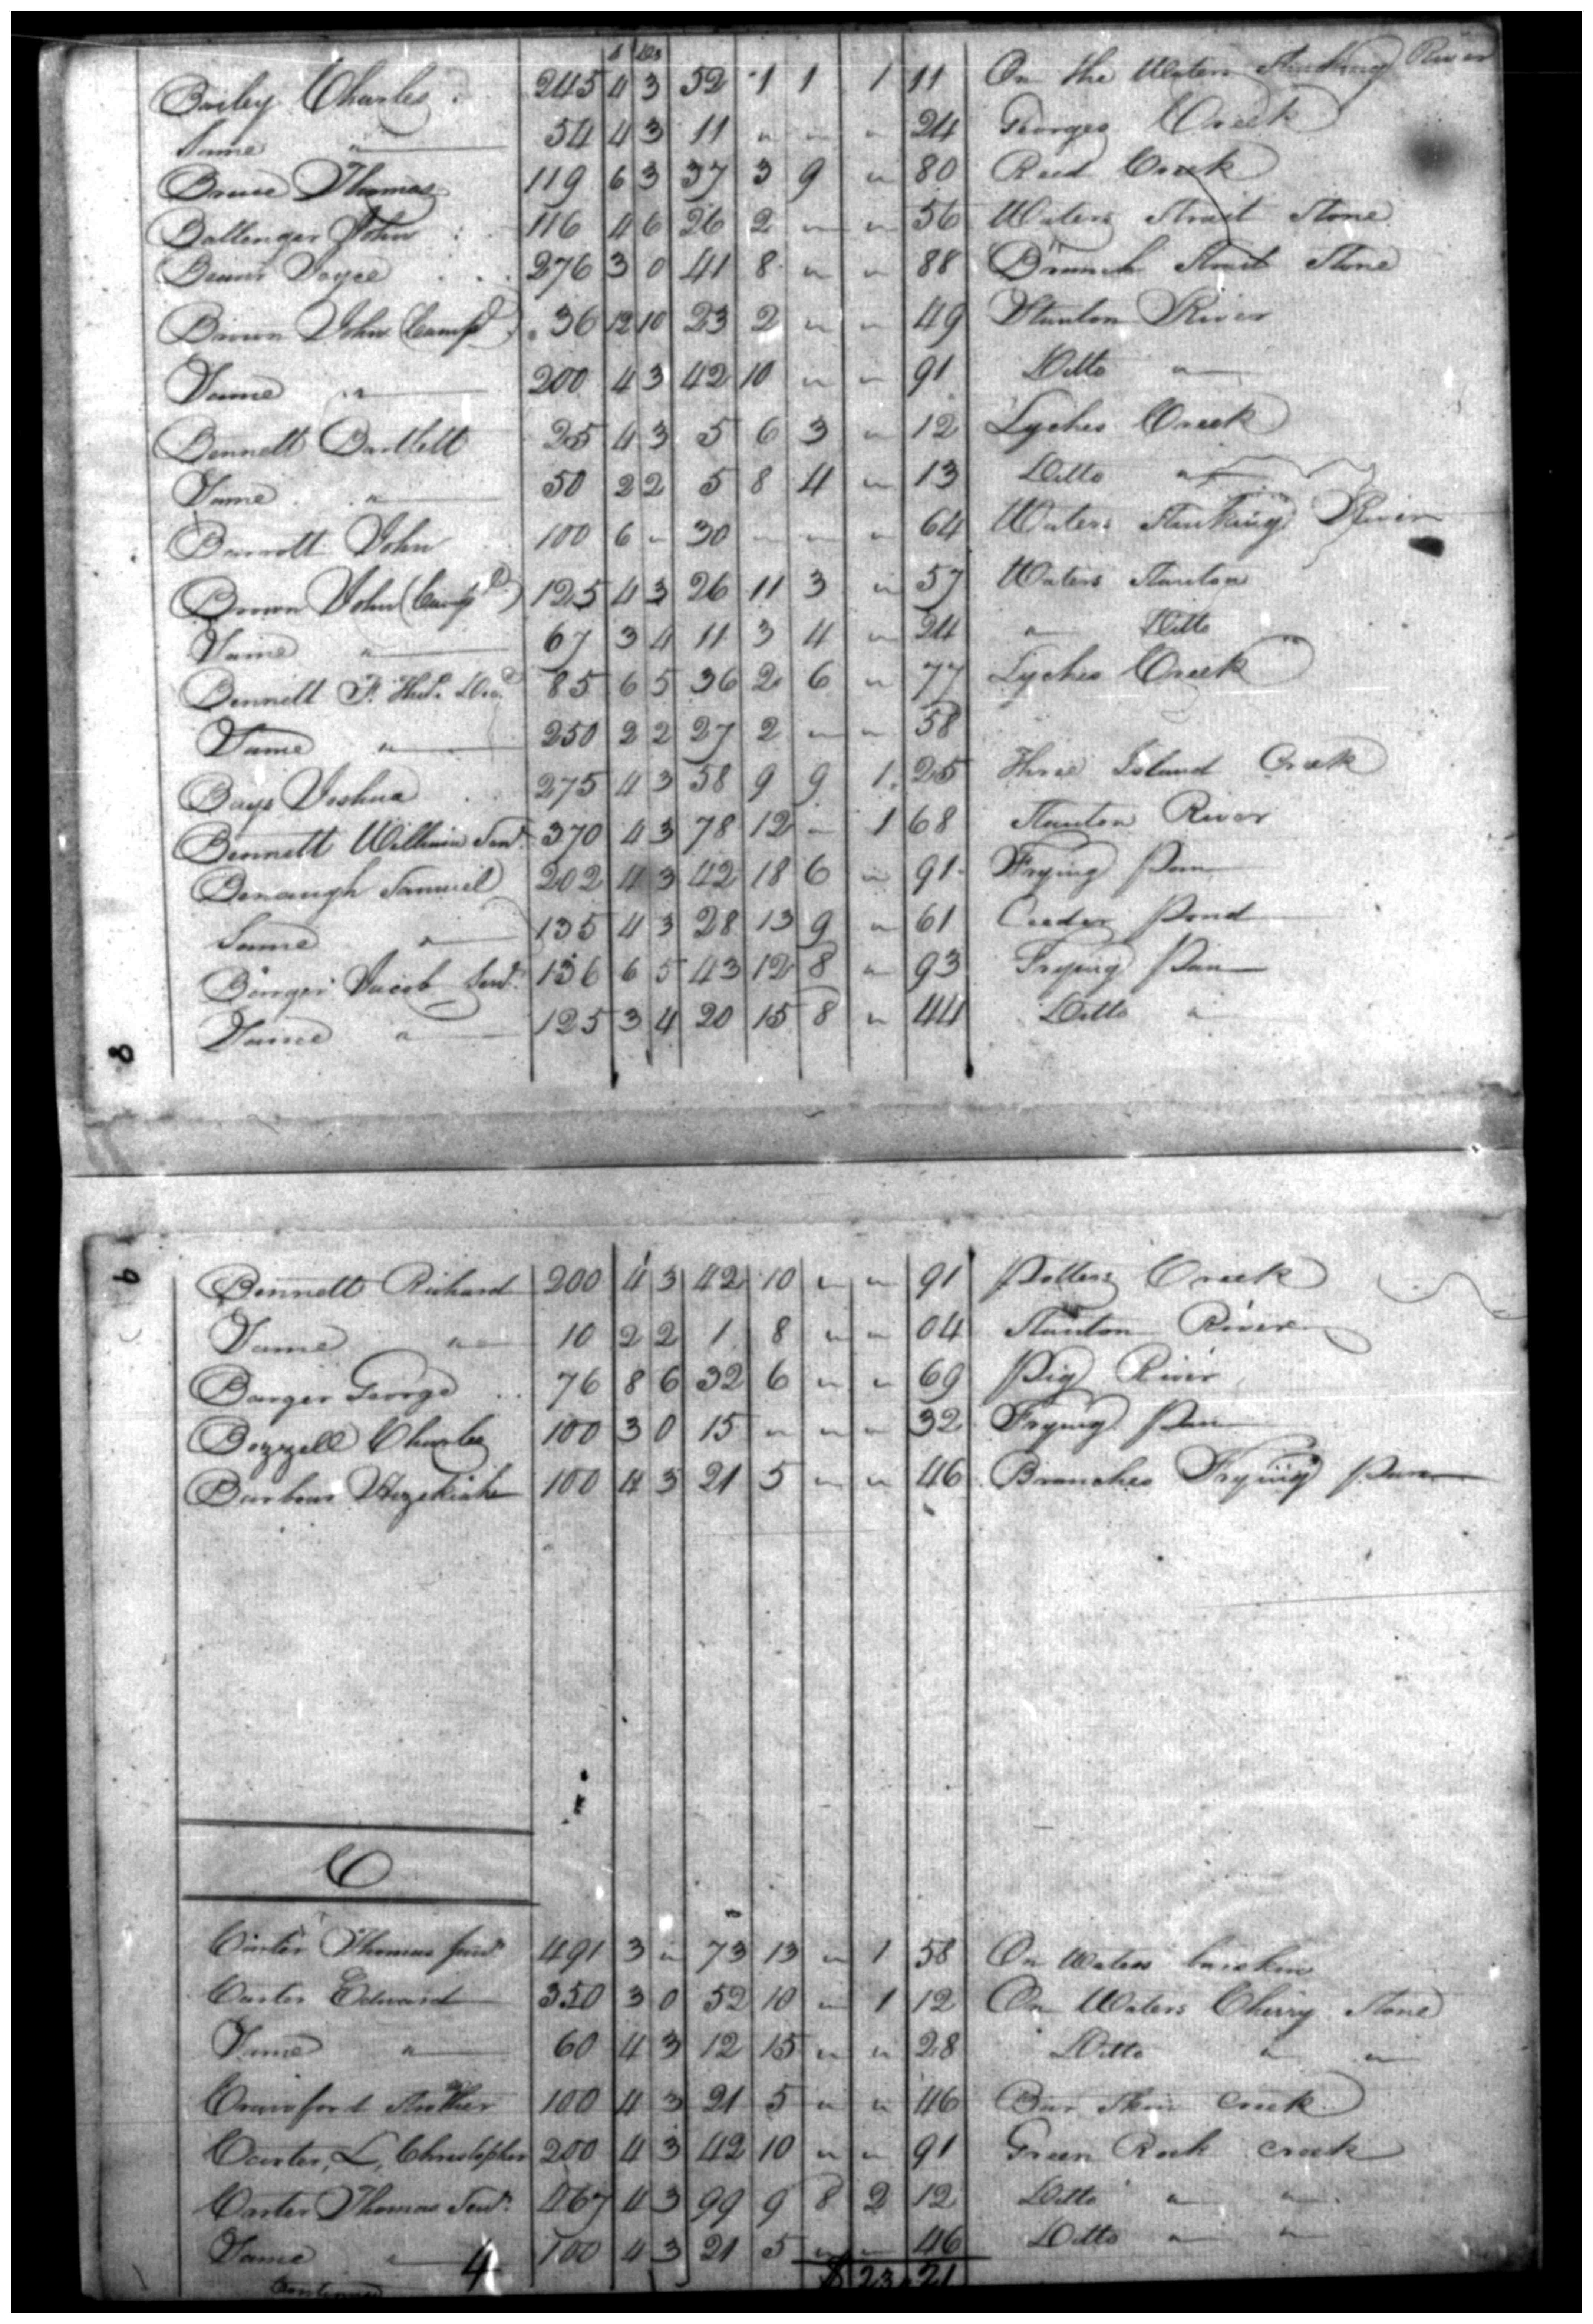 s Ds
Bailey Charles . 245 4 3 52 1 1 1 11 On the Waters Stinking River
Same " 54 4 3 11 " " " 24 Georges Creek
Bruce Thomas 119 6 3 37 3 9 " 80 Reed Creek
Ballenger John 116 4 6 26 2 " " 56 Waters Strait Stone
Joyce 276 3 0 41 8 " " 88 Branch Strait Stone
Brown John (Camp) 36 12 10 23 2 " " 49 Stanton River
Same " 200 4 3 42 10 " " 91 Ditto "
Bennett Bartlett 25 4 3 5 6 3 " 12 Lyches Creek
Same " 50 2 2 5 8 4 " 13 Ditto "
John 100 6 " 30 " " " 64 Waters Stinking River
Brown John (Camp) 125 4 3 26 11 3 " 57 Waters Stanton
Same " 67 3 4 11 3 4 " 24 " Ditto
Bennett 85 6 5 36 2 6 " 77 Lyches Creek
Same " 250 2 2 27 2 " " 58
Bays Joshua 275 4 3 58 9 9 1 25 Three Island Creek
Bennett William Senr. 370 4 3 78 12 " 1 68 Stanton River
Samuel 202 4 3 42 18 6 " 91 Frying Pan
Same " 135 4 3 28 13 9 " 61 Ceeder Pond
Jacob Senr. 136 6 5 43 12 8 " 93 Frying Pan
Same " 125 3 4 20 15 8 " 44 Ditto "
8
9
Bennett Richard 200 4 3 42 10 " " 91 Potters Creek
Same " 10 2 2 1 8 " " 04 Stanton River
Barger George 76 8 6 32 6 " " 69 Pig River
Bozzell Charles 100 3 0 15 " " " 32 Frying Pan
Barbour Hezekiah 100 4 3 21 5 " " 46 Branches Frying Pan
C
Carter Thomas Junr 491 3 " 73 13 " 1 58 On Waters
Carter Edward 350 3 0 52 10 " 1 12 On Waters Cherry Stone
Same " 60 4 3 12 15 " " 28 Ditto " "
Crawford 100 4 3 21 5 " " 46 Bar Skin Creek
Carter, L, Christopher 200 4 3 42 10 " " 91 Green Rock creek
Carter Thomas Senr. 467 4 3 99 9 8 2 12 Ditto " "
Same " 100 4 3 21 5 " " 46 Ditto " "
Continued 4 $ 23.21